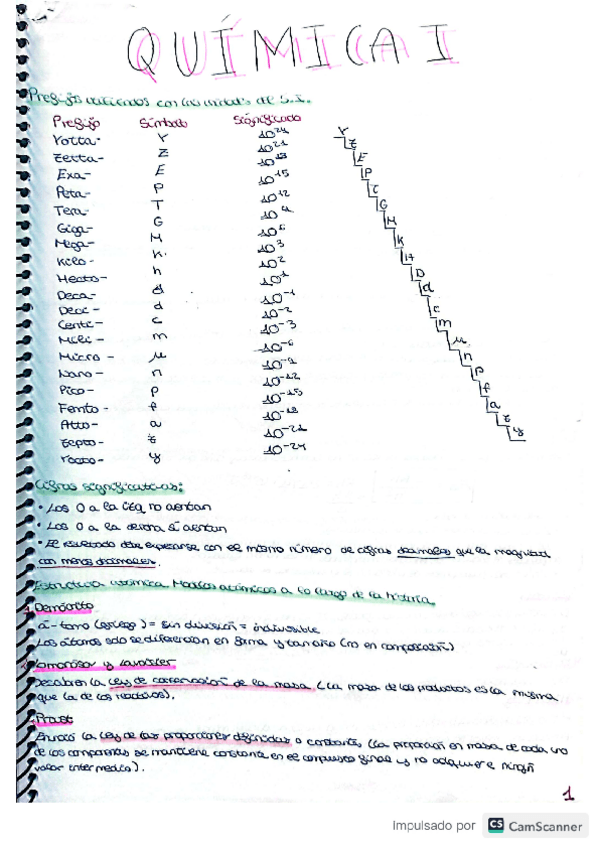 QUÍMICA I
Prefijos utilizados con las unidades del S.I.
Prefijo Símbolo Significado
Yotta- Y 10²⁴
Zetta- Z 10²¹
Exa- E 10¹⁸
Peta- P 10¹⁵
Tera- T 10¹²
Giga- G 10⁹
Mega- M 10⁶
Kilo- K 10³
Hecto- h 10²
Deca- d 10¹
Deci- d 10⁻¹
Centi- c 10⁻²
Mili- m 10⁻³
Micro- μ 10⁻⁶
Nano- n 10⁻⁹
Pico- p 10⁻¹²
Femto- f 10⁻¹⁵
Atto- a 10⁻¹⁸
Zepto- z 10⁻²¹
Yocto- y 10⁻²⁴
Y
Z
E
P
T
G
M
K
H
D
d
c
m
μ
n
p
f
a
z
y
Cifras significativas:
• Los 0 a la izq no cuentan
• Los 0 a la derecha sí cuentan
• El resultado debe expresarse con el mismo número de cifras decimales que la magnitud
con menos decimales.
Estructura atómica. Modelos atómicos a lo largo de la historia.
Demócrito
a-tomo (griego) = sin división = indivisible
Los átomos solo se diferencian en forma y tamaño (no en composición)
Lomonósov y Lavoisier
Descubren la Ley de conservación de la masa (La masa de los productos es la misma
que la de los reactivos).
Proust
Enunció la Ley de las proporciones definidas o constantes (La proporción en masa de cada uno
de los componentes se mantiene constante en el compuesto final y no adquiere ningún
valor intermedio).
1
Impulsado por CS CamScanner